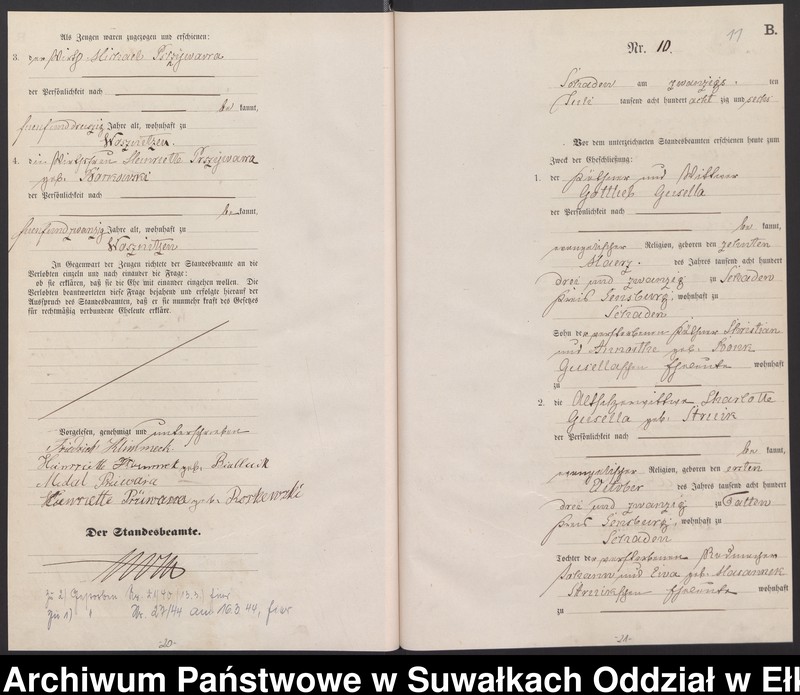 Als Zeugen waren zugezogen und erschienen:
3. der Wirth Michael Przygewarra
der Persönlichkeit nach
be kannt,
fuenfunddreißig Jahre alt, wohnhaft zu
Wosznitzen.
4. die Wirthsfrau Henriette Przygewarra
geb.
der Persönlichkeit nach
be kannt,
fuenfundzwanzig Jahre alt, wohnhaft zu
Wosznitzen
In Gegenwart der Zeugen richtete der Standesbeamte an die
Verlobten einzeln und nach einander die Frage:
ob sie erklären, daß sie die Ehe mit einander eingehen wollen. Die
Verlobten beantworteten diese Frage bejahend und erfolgte hierauf der
Ausspruch des Standesbeamten, daß er sie nunmehr kraft des Gesetzes
für rechtmäßig verbundene Eheleute erkläre.
Vorgelesen, genehmigt und unterschrieben
Friedrich Klimmeck
Heinriette geb.
Henriette geb.
Der Standesbeamte.
zu 2) Gestorben
zu 1) Nr. 27/44 am 16.3.44,
-20-
11
B.
Nr. 10.
Schaden am zwanzigsten
Juli tausend acht hundert acht zig und sechs
Vor dem unterzeichneten Standesbeamten erschienen heute zum
Zweck der Eheschließung:
1. der Käthner und Wittwer
Gottlieb Gusella
der Persönlichkeit nach
be kannt,
evangelischer Religion, geboren den zehnten
Maerz des Jahres tausend acht hundert
drei und zwanzig zu Schaden
Kreis Sensburg, wohnhaft zu
Schaden
Sohn der verstorbenen Käthner Christian
und geb.
Gusellaschen Eheleute wohnhaft
zu
2. die Altsitzerwittwe Charlotte
Gusella geb. Struck
der Persönlichkeit nach
be kannt,
evangelischer Religion, geboren den ersten
October des Jahres tausend acht hundert
drei und zwanzig zu
Kreis Sensburg, wohnhaft zu
Schaden
Tochter der verstorbenen
Johann und Ewa geb.
Struckschen Eheleute wohnhaft
zu
-21-
Archiwum Państwowe w Suwałkach Oddział w Eł